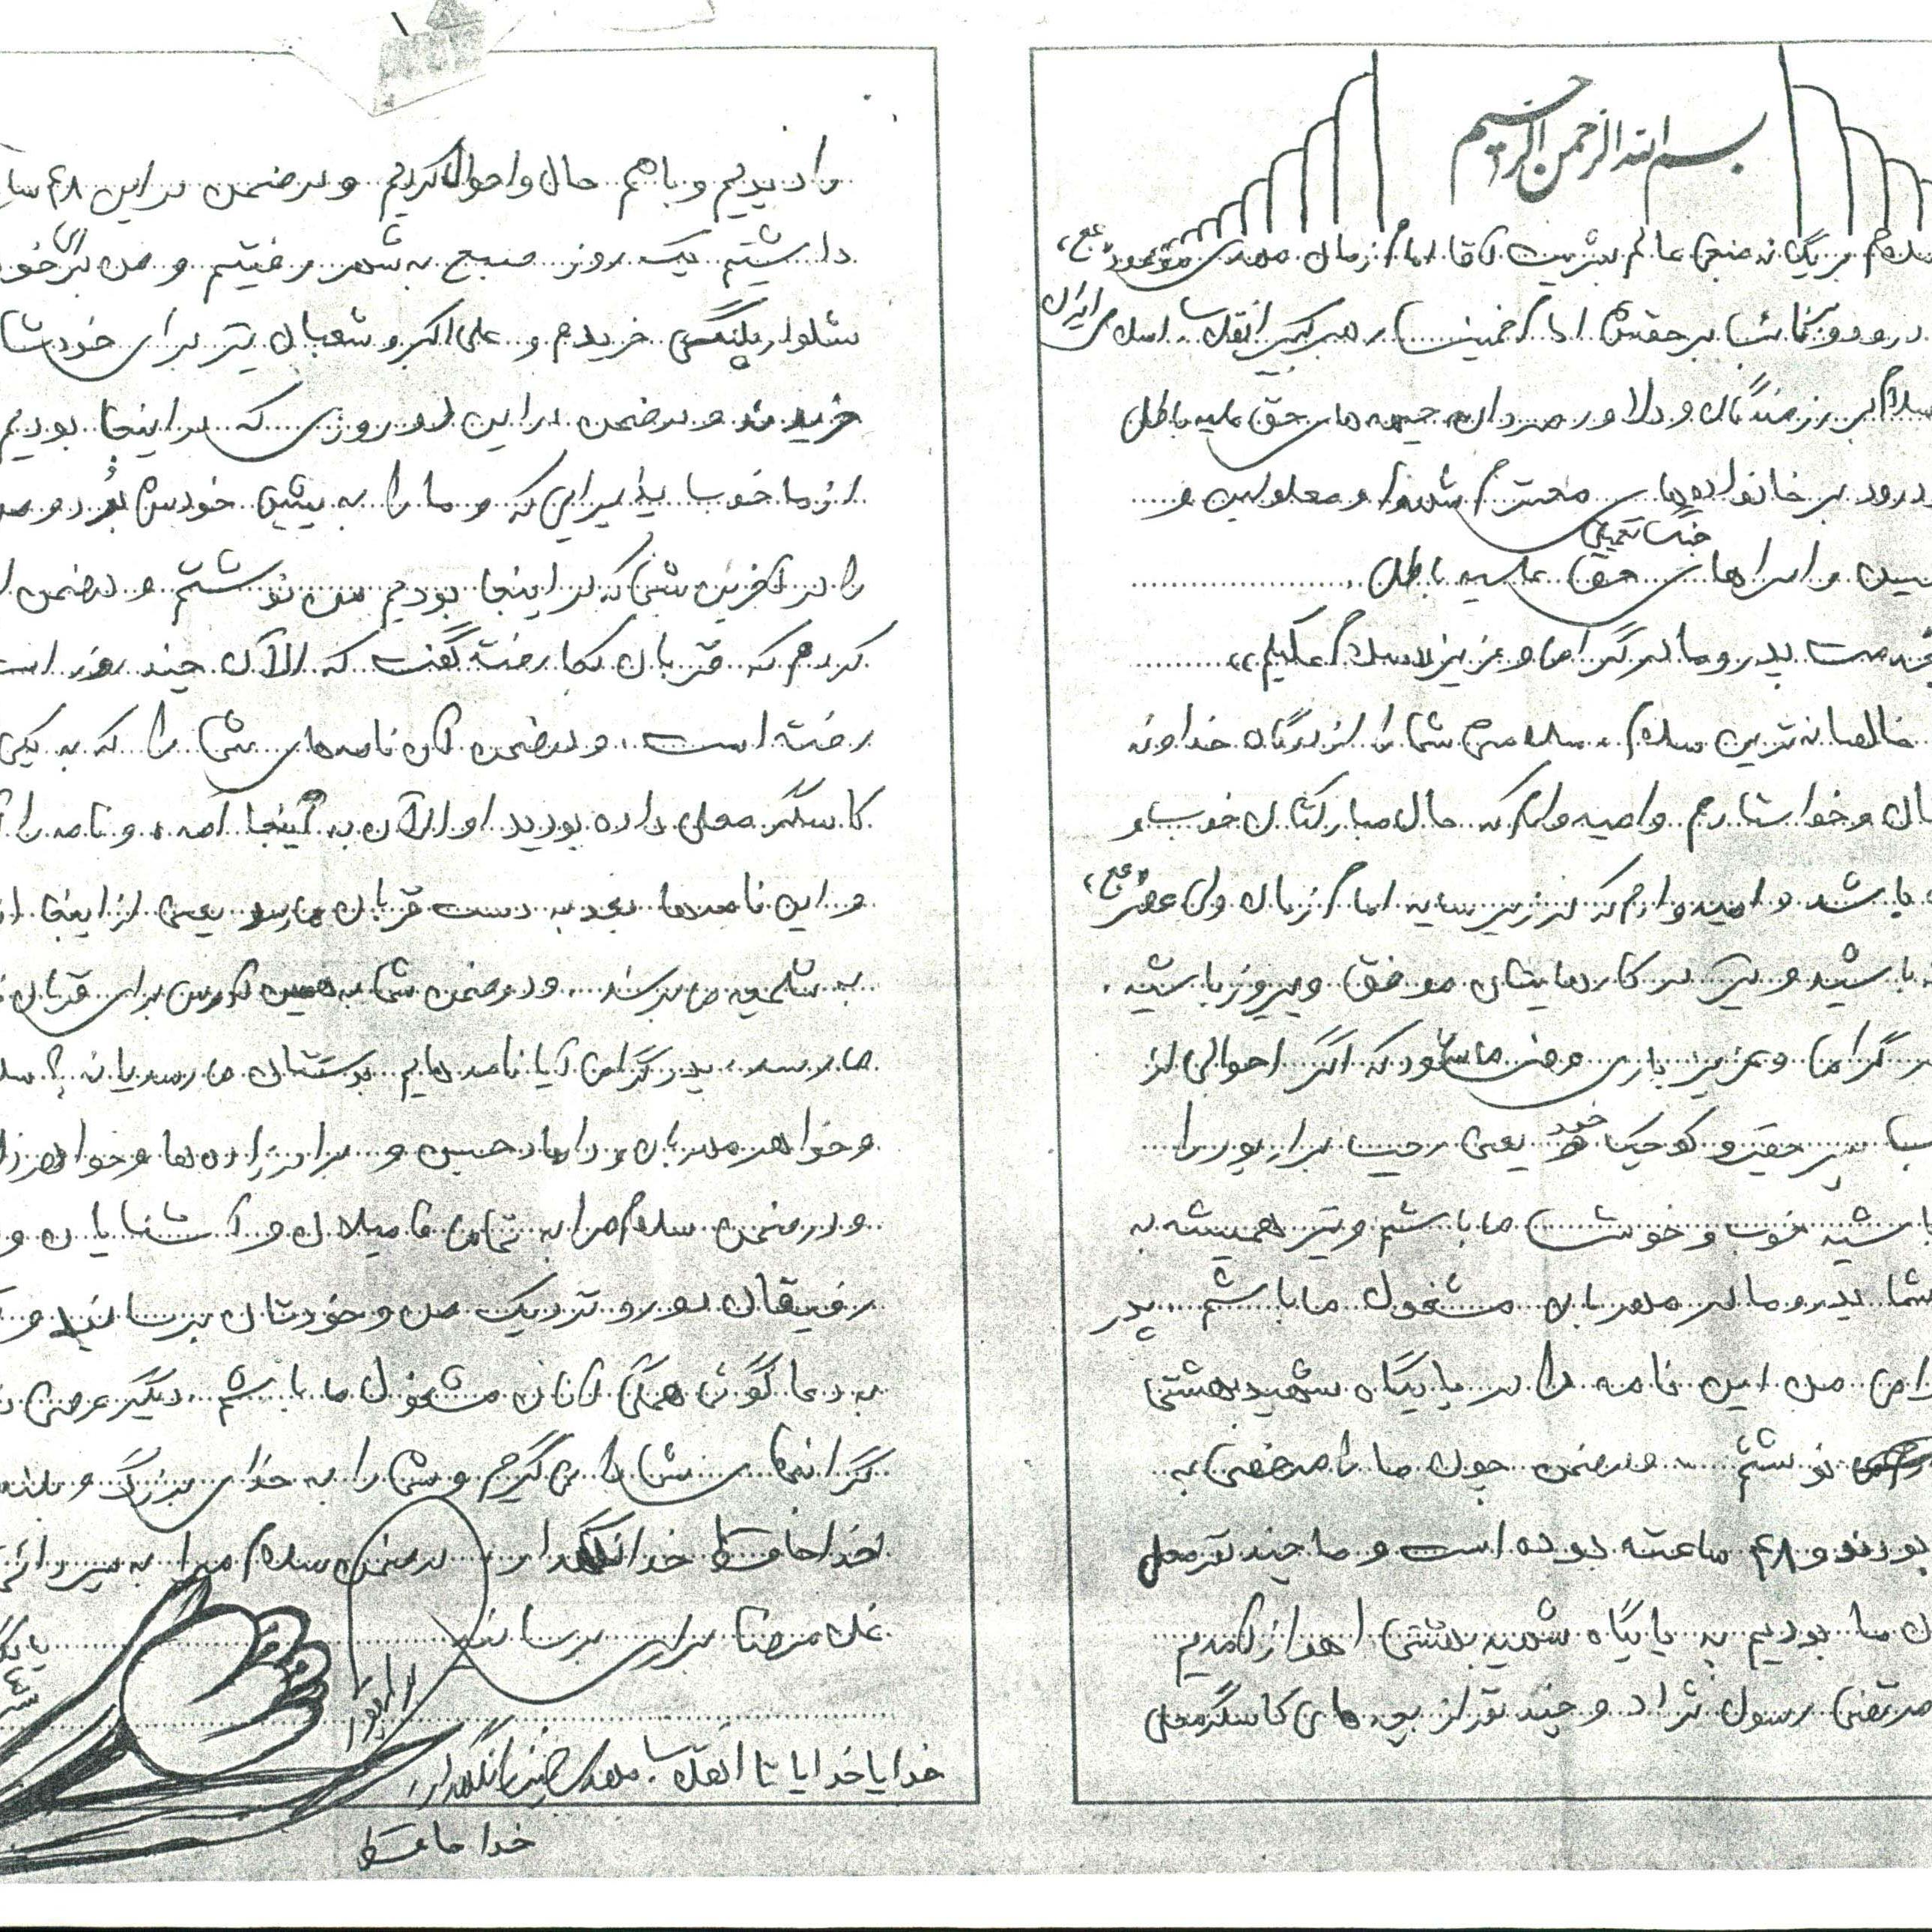 بسم الله الرحمن الرحیم
سلام بر یگانه منجی عالم بشریت آقا امام زمان مهدی موعود «عج»
درود و بر نائب برحقش امام خمینی رهبر کبیر انقلاب اسلامی ایران
سلام بر رزمندگان و دلاور مردان جبهه های حق علیه باطل
درود بر خانواده های محترم شهدا و معلولین و
و اسراهای جنگ تحمیلی حق علیه باطل
خدمت پدر و مادر گرامی و عزیز سلام علیکم
خالصانه ترین سلام سلامتی شما را از درگاه خداوند
و خواستارم و امیدوارم که حال مبارکتان خوب و
باشد و امیدوارم که در زیر سایه امام زمان ولی عصر «عج»
باشید و نیز در کارهایتان موفق و پیروز باشید
گرامی و عزیز باری عرض می شود که اگر احوالی از
پسر حقیر و کوچک خود یعنی رحمت برارپور را
باشید خوب و خوش می باشم و نیز همیشه به
شما پدر و مادر مهربان مشغول می باشم پدر
من این نامه را در پایگاه شهید بهشتی
نوشتم و درضمن چون ما را مرخصی به
بودند و ۴۸ ساعته بوده است و ما چند نفر محل
ما بودیم به پایگاه شهید بهشتی اهواز آمدیم
مرتضی رسول نژاد و چند نفر از بچه های کاسگر محل
را دیدیم و با هم حال و احوال کردیم و درضمن در این ۴۸
داشتیم یک روز صبح به شهر رفتیم و من برای
شلوار پلنگی خریدم و علی اکبر و شعبان نیز برای
خریدند و درضمن در این دو روزی که در اینجا بودیم
از ما خوب پذیرایی کرد و ما را به پیش خودش برد و
را در آخرین شبی که در اینجا بودیم من نوشتم و درضمن
کردم که قربان کجا رفته گفت که الآن چند روز است
رفته است و درضمن آن نامه های شما را که به یکی
کاسگر محل داده بودید او الآن به اینجا آمد و نامه را
و این نامه ها بعد به دست قربان می رسد یعنی از اینجا
به شلمچه می برند و درضمن شما به همین آدرس برای قربان
می رسد پدر گرامی آیا نامه هایم بدستتان می رسد یا نه؟
و خواهر مهربان و داماد حسین و برادرزاده ها و
و درضمن سلام مرا به تمامی فامیلان و آشنایان و
رفیقان دور و نزدیک من و خودتان برسانید و
به دعا گوئی همگی آنان مشغول می باشم دیگر عرضی
گرانبهای شما را می گیرم و شما را به خدای بزرگ و
خداحافظ خدانگهدار درضمن سلام مرا به
غلامرضا براری برسانید
برارپور
خدایا خدایا تا انقلاب مهدی خمینی را نگهدار
خداحافظ